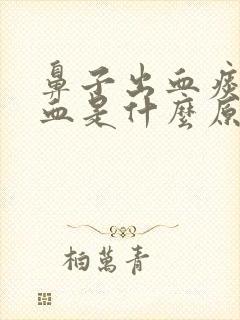 鼻子出血痰
血是什麼原
柏萬青